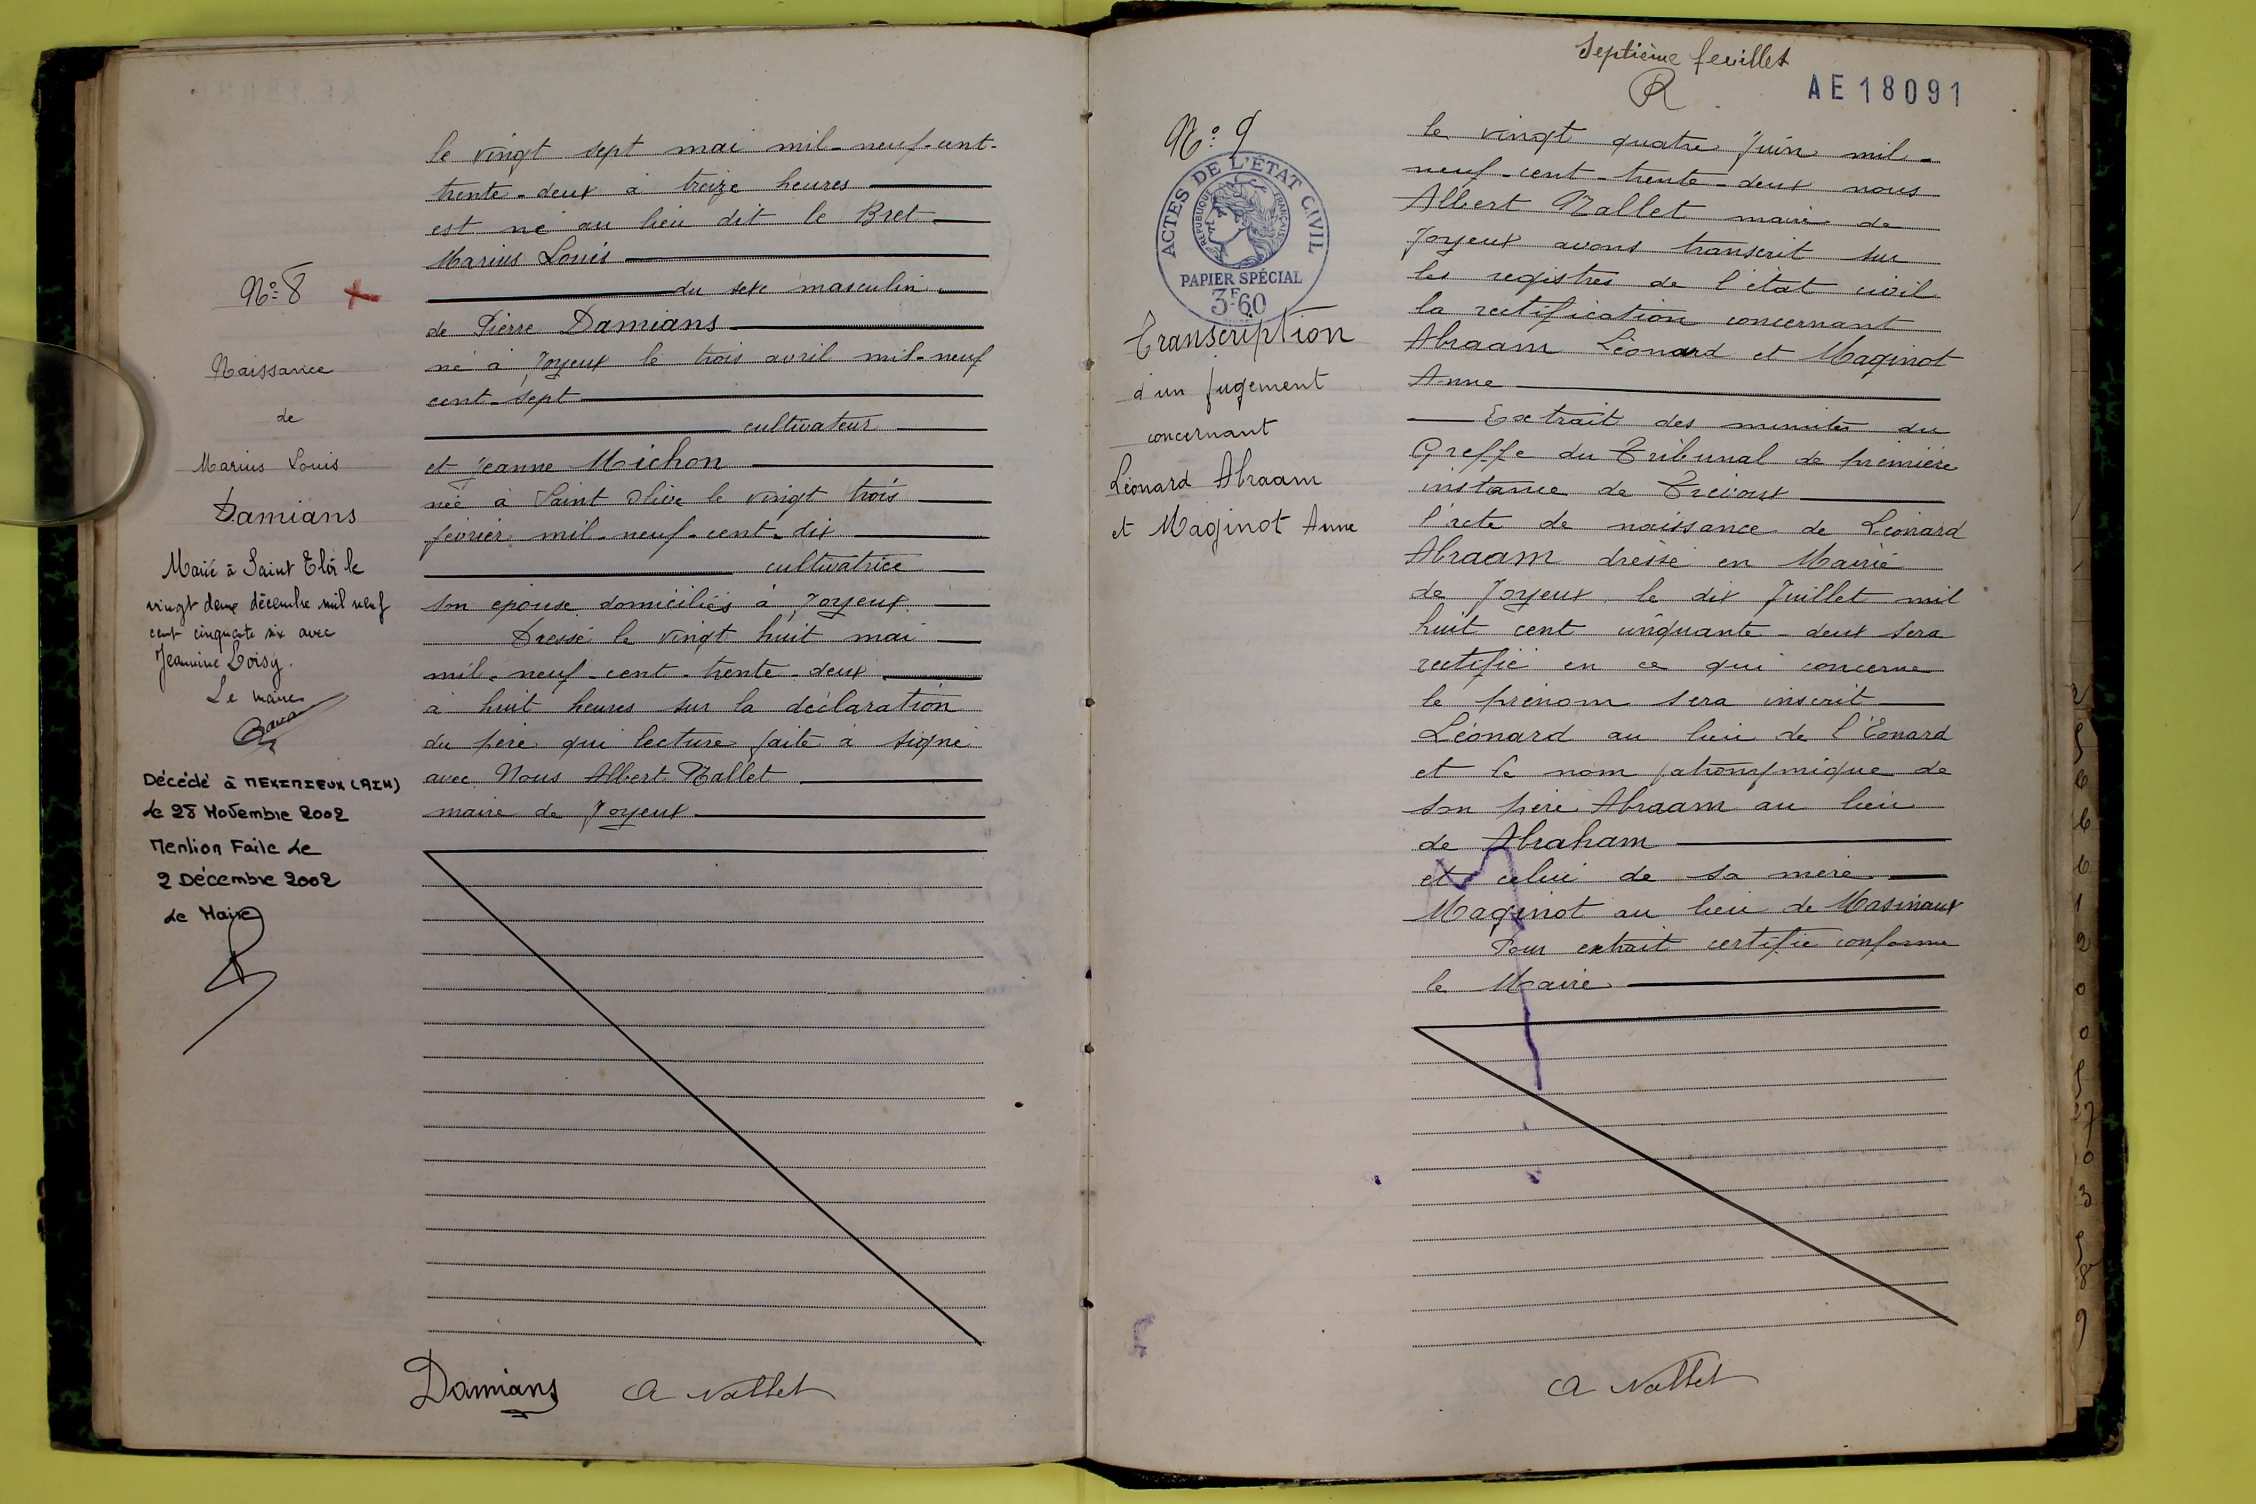 N° 8
Naissance
de
Marius Louis
Damians
Marié à Saint Eloi le
vingt deux décembre mil neuf
cent cinquante six avec
Jeannine Loisy.
Le Maire
Décédé à MEXIMIEUX (AIN)
Le 28 Novembre 2002
Mention Faite Le
2 Décembre 2002
Le Maire
le vingt sept mai mil-neuf-cent-
trente-deux à treize heures
est né au lieu dit le Bret
Marius Louis
du sexe masculin
de Pierre Damians
né à Joyeux le trois avril mil-neuf
cent-sept
cultivateur
et Jeanne Michon
née à Saint Olive le vingt trois
février mil-neuf-cent-dix
cultivatrice
son épouse domiciliés à Joyeux
Dressé le vingt huit mai
mil-neuf-cent-trente-deux
à huit heures sur la déclaration
du père qui lecture faite a signé
avec Nous Albert Nallet
maire de Joyeux
Damians A Nallet
Septième feuillet
AE 18091
N° 9
ACTES DE L'ÉTAT CIVIL
RÉPUBLIQUE FRANÇAISE
PAPIER SPÉCIAL
3F60
Transcription
d'un jugement
concernant
Léonard Abraam
et Maginot Anne
le vingt quatre Juin mil-
neuf-cent-trente-deux nous
Albert Nallet maire de
Joyeux avons transcrit sur
les registres de l'état civil
la rectification concernant
Abraam Léonard et Maginot
Anne
Extrait des minutes du
Greffe du Tribunal de première
instance de Trévoux
l'acte de naissance de Léonard
Abraam dressé en Mairie
de Joyeux le dix Juillet mil
huit cent cinquante-deux sera
rectifié en ce qui concerne
le prénom sera inscrit
Léonard au lieu de l'Eonard
et le nom patronymique de
son père Abraam au lieu
de Abraham
et celui de sa mère
Maginot au lieu de Masinaux
Pour extrait certifié conforme
le Maire
A Nallet